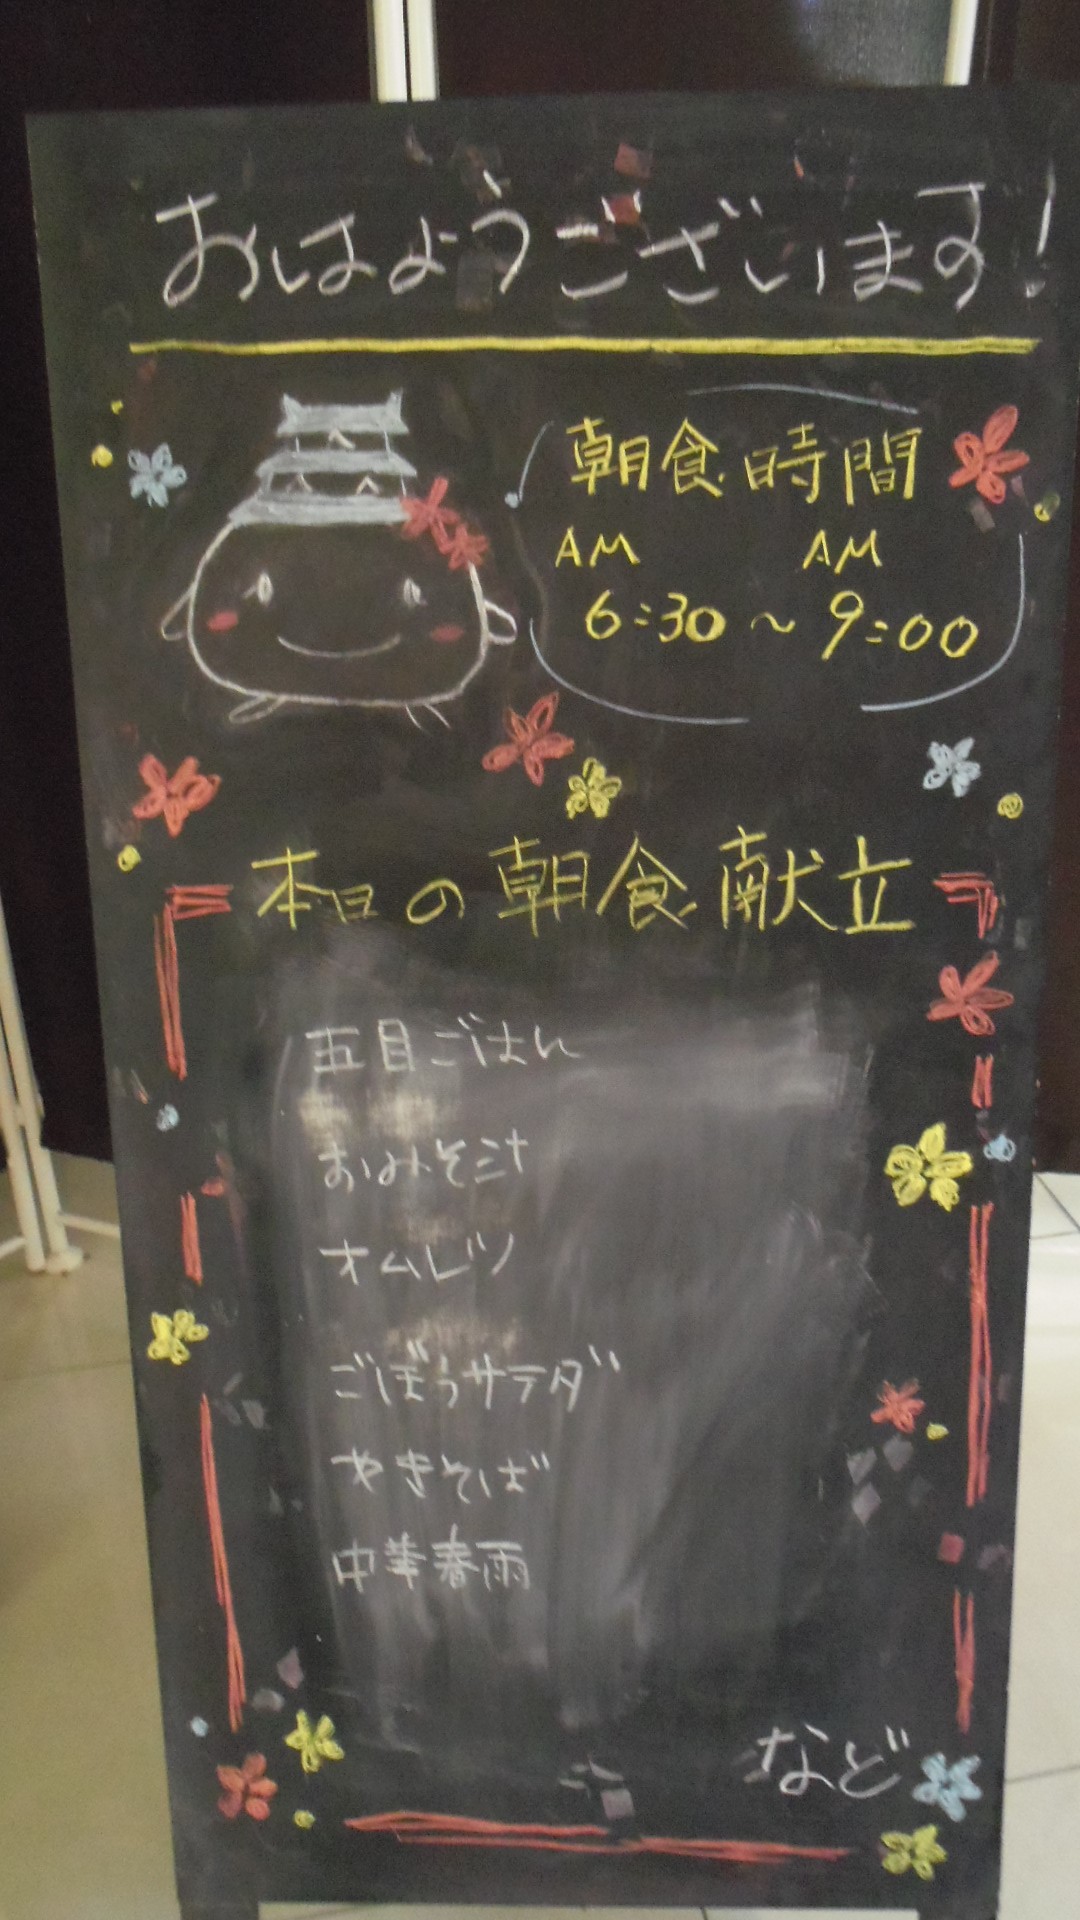 おはようございます!
朝食時間
AM AM
6:30~9:00
本日の朝食献立
五目ごはん
おみそ汁
オムレツ
ごぼうサラダ
やきそば
中華春雨
など